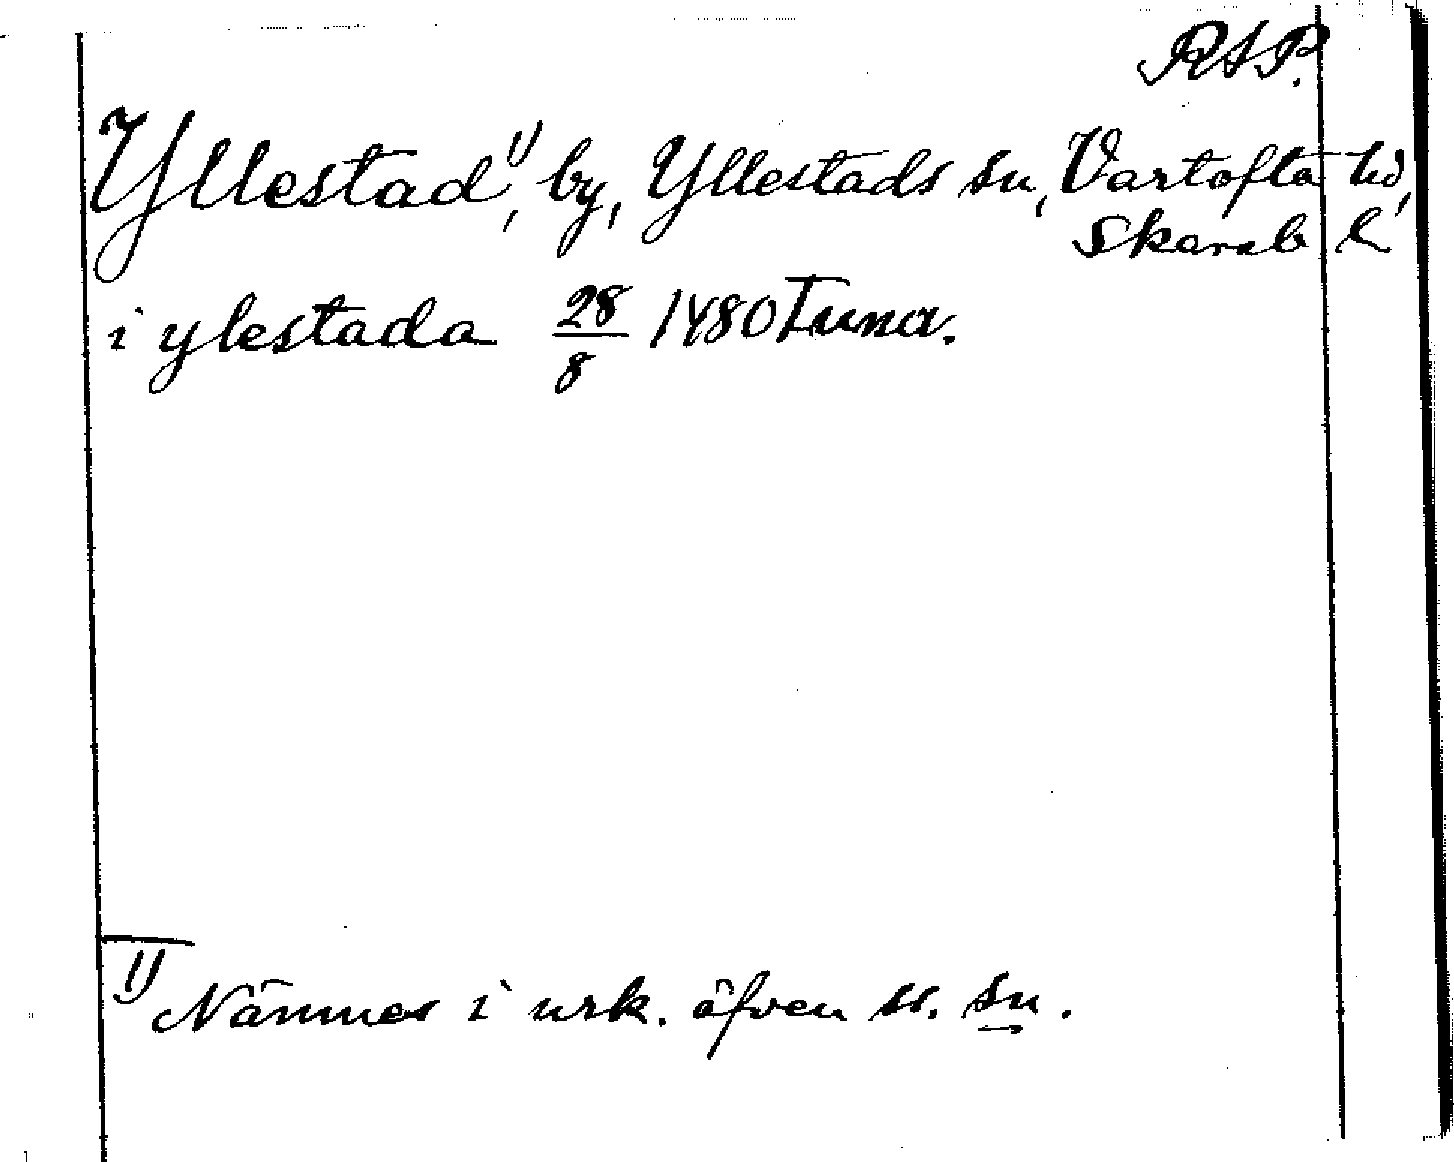 RAP.
Yllestad,¹⁾ by, Yllestads sn, Vartofta hd,
Skarab. l.
i ylestada 28/8 1480 Tuna.
¹⁾ Nämnes i urk. äfven ss. sn.